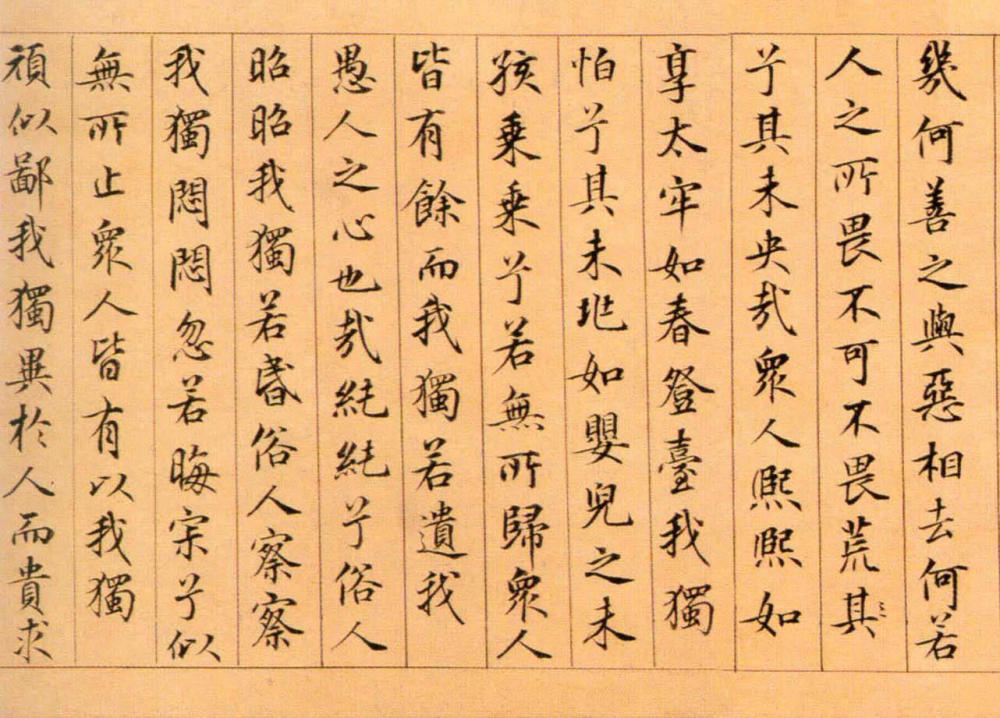 幾何善之與惡相去何若
人之所畏不可不畏荒其
兮其未央哉衆人熙熙如
享太牢如春登臺我獨
怕兮其未兆如嬰兒之未
孩乗乗兮若無所歸衆人
皆有餘而我獨若遺我
愚人之心也哉純純兮俗人
昭昭我獨若昏俗人察察
我獨悶悶忽若晦宋兮似
無所止衆人皆有以我獨
頑似鄙我獨異於人而貴求